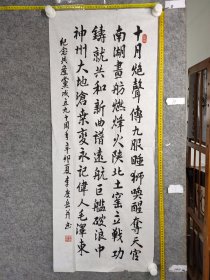 十月炮聲傳九服睡獅喚醒奪天宮
南湖畫舫燃烽火陝北土窑立戰功
鑄就共和新曲譜遠航巨艦破浪中
神州大地滄桑變永記偉人毛澤東
紀念共產黨成立九十周年辛卯夏李